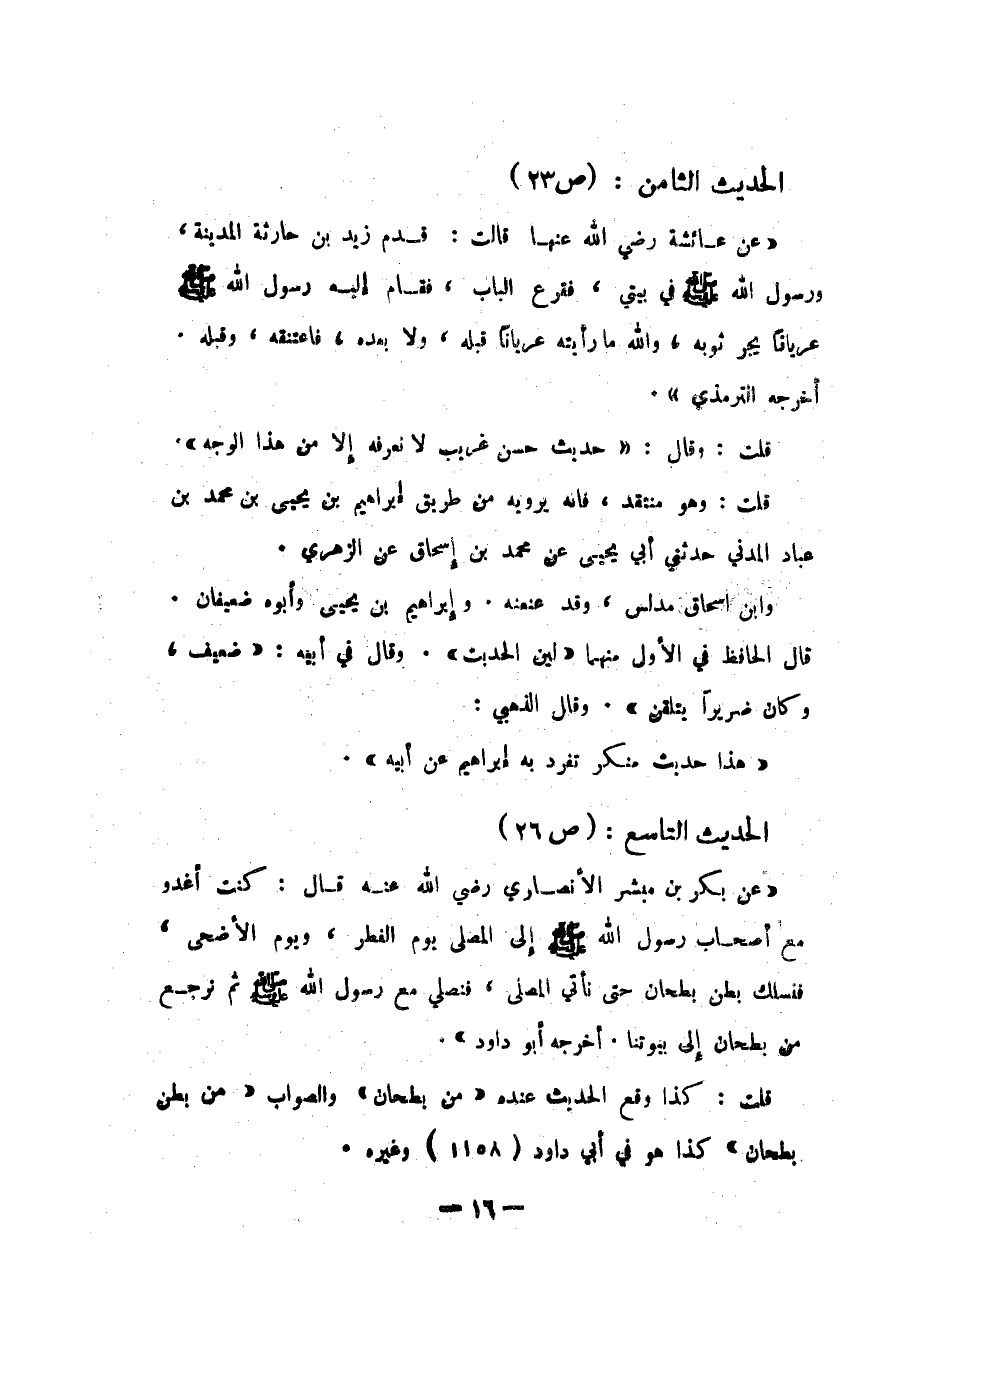 الحديث الثامن : (ص٢٣)
«عن عـائشة رضي الله عنهـا قالت : قـدم زيد بن حارثة المدينة ،
ورسول الله ﷺ في بيتي ، فقرع الباب ، فقـام إليـه رسول الله ﷺ
عرياناً يجر ثوبه ، والله ما رأيته عرياناً قبله ، ولا بعده ، فاعتنقه ، وقبله .
أخرجه الترمذي » .
قلت : وقال : « حديث حسن غريب لا نعرفه إلا من هذا الوجه».
قلت : وهو منتقد ، فانه يرويه من طريق إبراهيم بن يحيى بن محمد بن
عباد المدني حدثني أبي يحيى عن محمد بن إسحاق عن الزهري .
وابن اسحاق مدلس ، وقد عنعنه . وإبراهيم بن يحيى وأبوه ضعيفان .
قال الحافظ في الأول منهما «لين الحديث» . وقال في أبيه : « ضعيف ،
وكان ضريراً يتلقن » . وقال الذهبي :
« هذا حديث منكر تفرد به إبراهيم عن أبيه » .
الحديث التاسع : ( ص ٢٦ )
«عن بكر بن مبشر الأنصـاري رضي الله عنـه قـال : كنت أغدو
مع أصحـاب رسول الله ﷺ إلى المصلى يوم الفطر ، ويوم الأضحى ،
فنسلك بطن بطحان حتى نأتي المصلى ، فنصلي مع رسول الله ﷺ ثم نرجـع
من بطحان إلى بيوتنا . أخرجه أبو داود » .
قلت : كذا وقع الحديث عنده « من بطحان» والصواب « من بطن
بطحان» كذا هو في أبي داود ( ١١٥٨ ) وغيره .
— ١٦ —